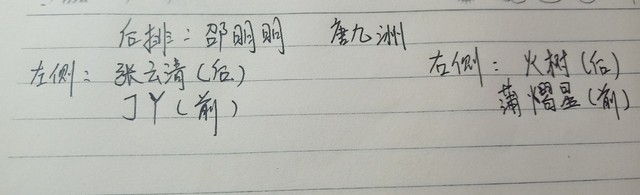 后排：邵明明 唐九洲
左侧：张云清（后） 右侧：火树（后）
JY（前） 蒲熠星（前）